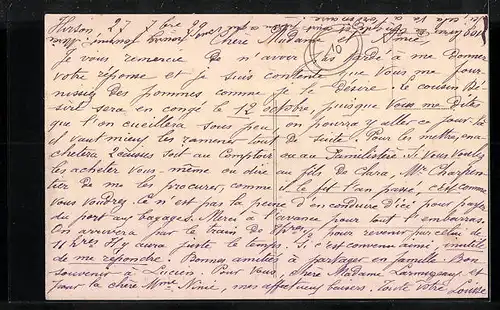 Hirson, 27 7bre 99
Chère Madame et Amie,
je vous remercie de n'avoir pas tardé à me donner
votre réponse et je suis contente que vous me four-
nissiez des pommes comme je le désire. Le cousin Dé-
siré sera en congé le 12 octobre, puisque vous me dites
que l'on cueillera sous peu, on pourra y aller ce jour-là
il vaut mieux les ramener tout de suite. Pour les mettre, on
achètera 2 caisses soit au Comptoir ou au Familistère. Si vous voulez
les acheter vous-même ou dire au fils de Clara, Mr Charpen-
tier de me les procurer, comme il le fit l'an passé, c'est comme
vous voudrez. Ce n'est pas la peine d'en conduire d'ici pour payer
du port aux bagages. Merci à l'avance pour tout l'embarras.
On arrivera par le train de hres, pour revenir par celui de
11 hres il y aura juste le temps. Si c'est convenu ainsi, inutile
de me répondre. Bonnes amitiés à partager en famille. Bon
souvenir à Lucien. Pour vous, chère Madame Larmigaux et
pour la chère Mme Ninie, mes affectueux baisers. Toute vôtre Louise
10